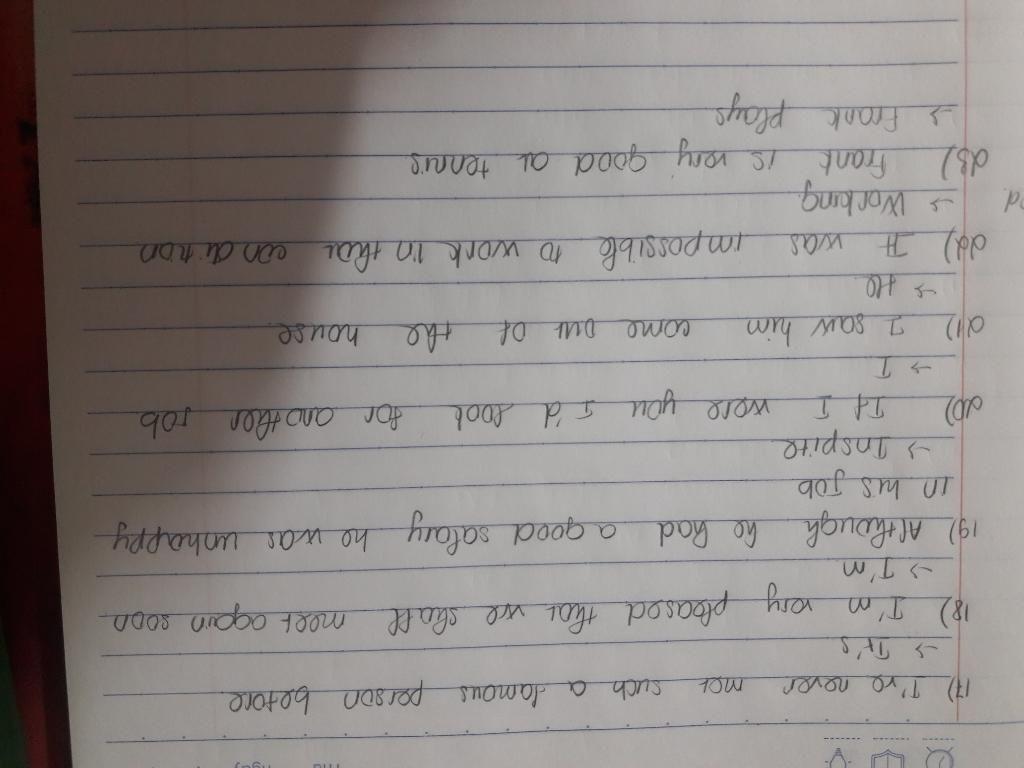 Thứ Ngày
17) I've never met such a famous person before
→ It's
18) I'm very pleased that we shall meet again soon
→ I'm
19) Although he had a good salary he was unhappy
in his job
→ Inspite
20) If I were you I'd look for another job
→ I
21) I saw him come out of the house.
→ He
22) It was impossible to work in that condition
→ Working
23) Frank is very good at tennis
→ Frank plays